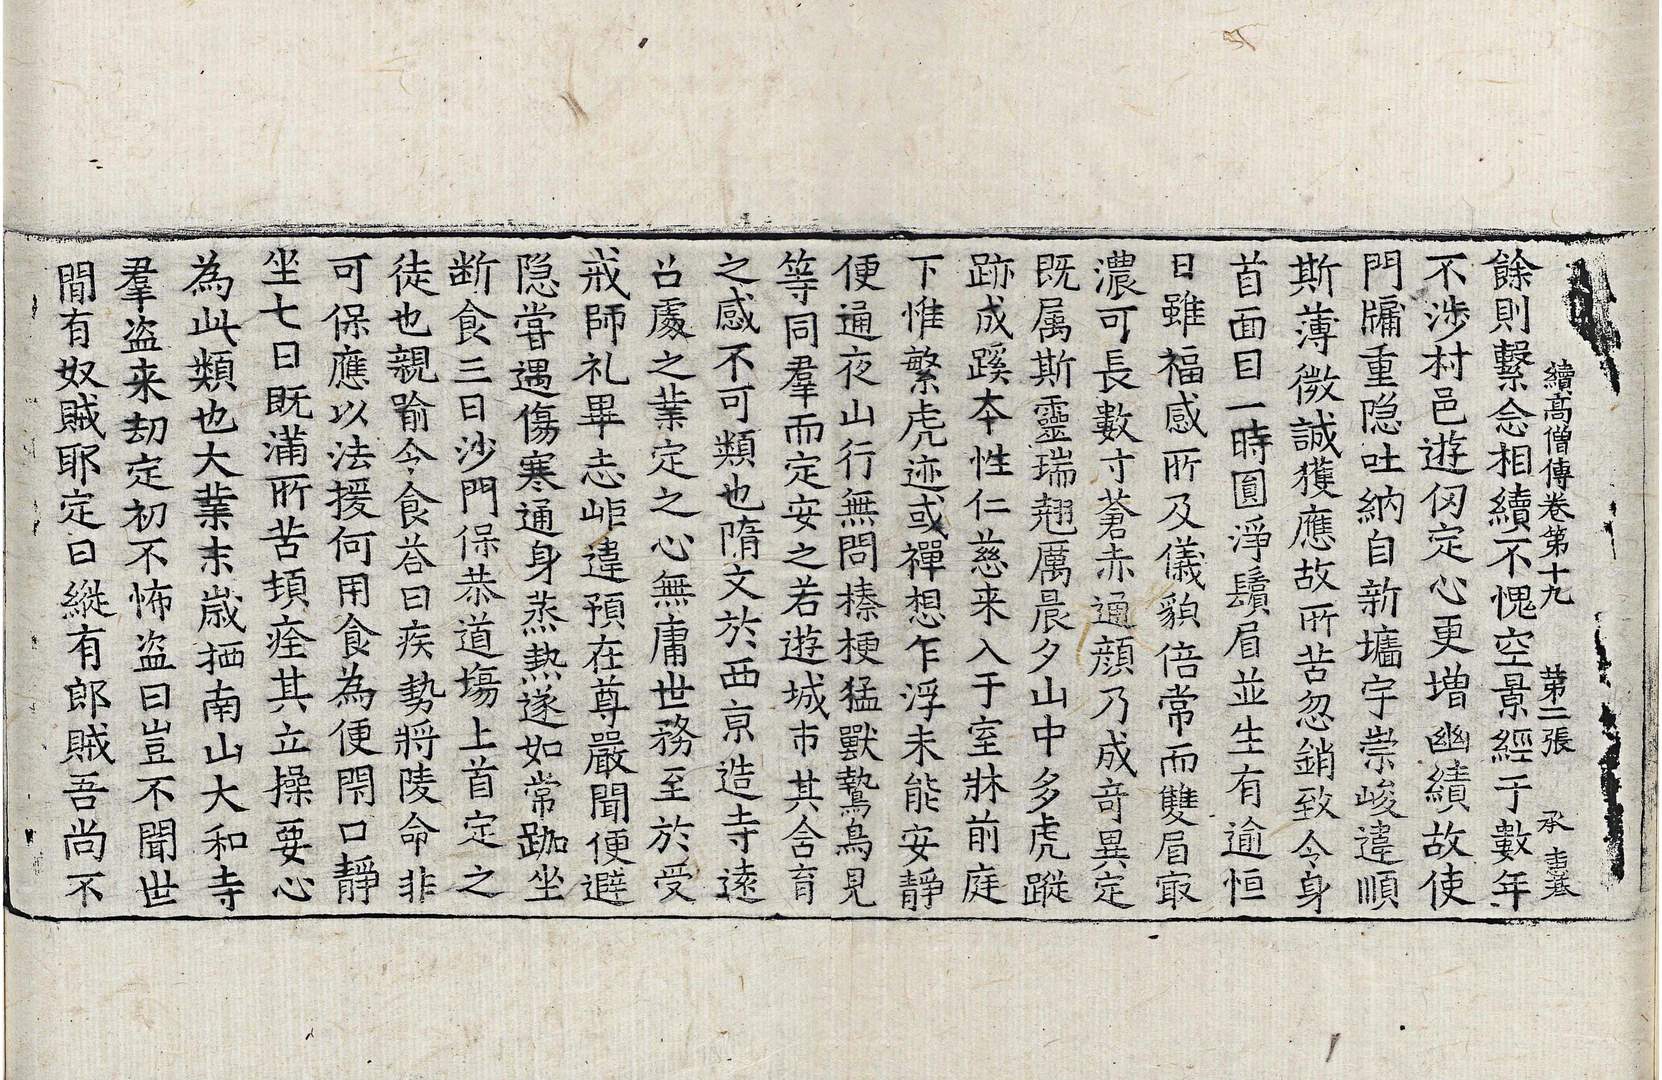 續高僧傳卷第十九 第二張 承
餘則繫念相續不愧空景經于數年
不涉村邑遊仞定心更增幽績故使
門牖重隐吐納自新墻宇崇峻違順
斯薄微誠獲應故所苦忽銷致令身
首面目一時圎淨鬚眉並生有逾恒
日雖福感所及儀貌倍常而雙眉㝡
濃可長數寸蒼赤通顔乃成竒異定
既属斯靈瑞翹厲晨夕山中多虎蹤
跡成蹊夲性仁慈来入于室牀前庭
下惟繁虎迹或禪想乍浮未能安靜
便通夜山行無問榛梗猛獸鷙鳥見
等同羣而定安之若遊城市其含育
之感不可類也隋文於西亰造寺逺
召處之業定之心無庸世務至於受
戒師礼畢志岠違預在尊嚴聞便避
隐嘗遇傷寒通身蒸熱遂如常跏坐
断食三日沙門保恭道塲上首定之
徒也親喻令食荅曰疾勢將陵命非
可保應以法援何用食為便閇口靜
坐七日既滿所苦頓痊其立操要心
為此類也大業末歳栖南山大和寺
羣盗来劫定初不怖盗曰豈不聞世
閒有奴賊耶定曰縱有郎賊吾尚不